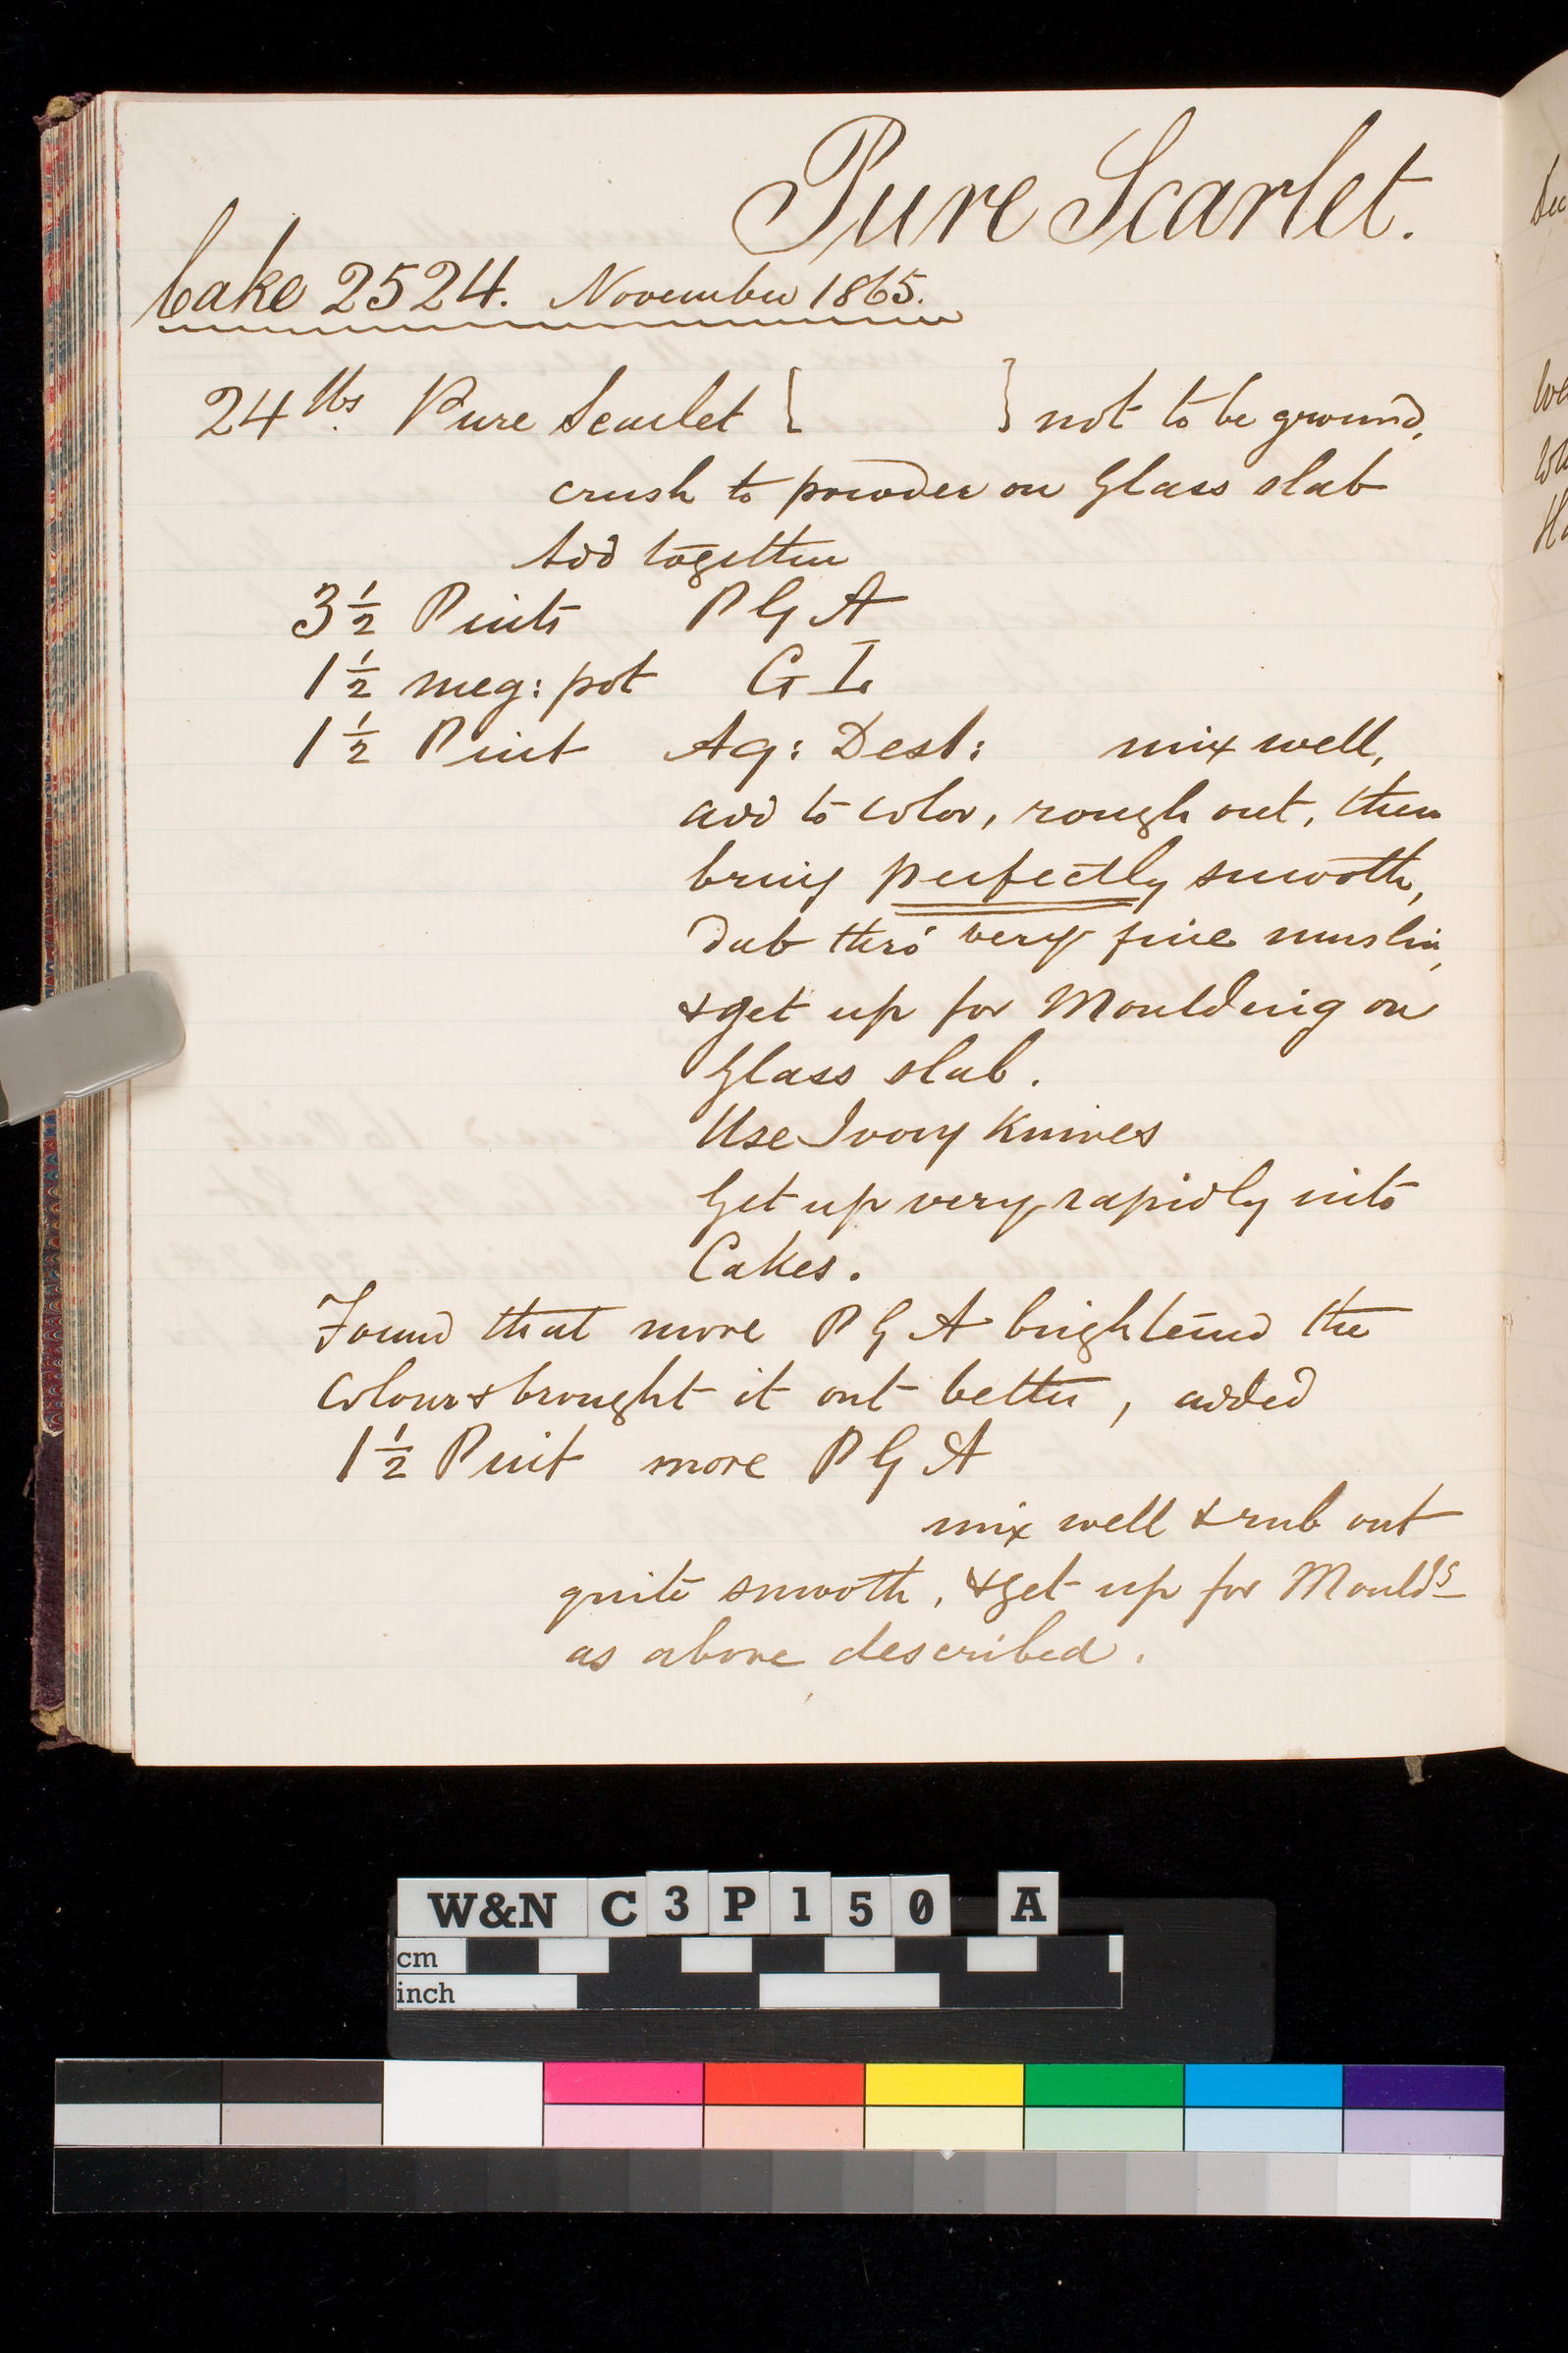 Pure Scarlet.
Cake 2524. November 1865.
24 lbs. Pure Scarlet { } not to be ground,
crush to powder on Glass slab
Add together
3½ Pints P G A
1½ meg: pot G L
1½ Pint Aq: Dest: mix well,
add to color, rough out, then
bring perfectly smooth,
dub thro' very fine muslin,
& get up for Moulding on
Glass slab.
Use Ivory Knives
Get up very rapidly into
Cakes.
Found that more P G A brightened the
Colour & brought it out better, added
1½ Pint more P G A
mix well & rub out
quite smooth, & get up for Moulds
as above described.
W&N C3P150 A
cm
inch